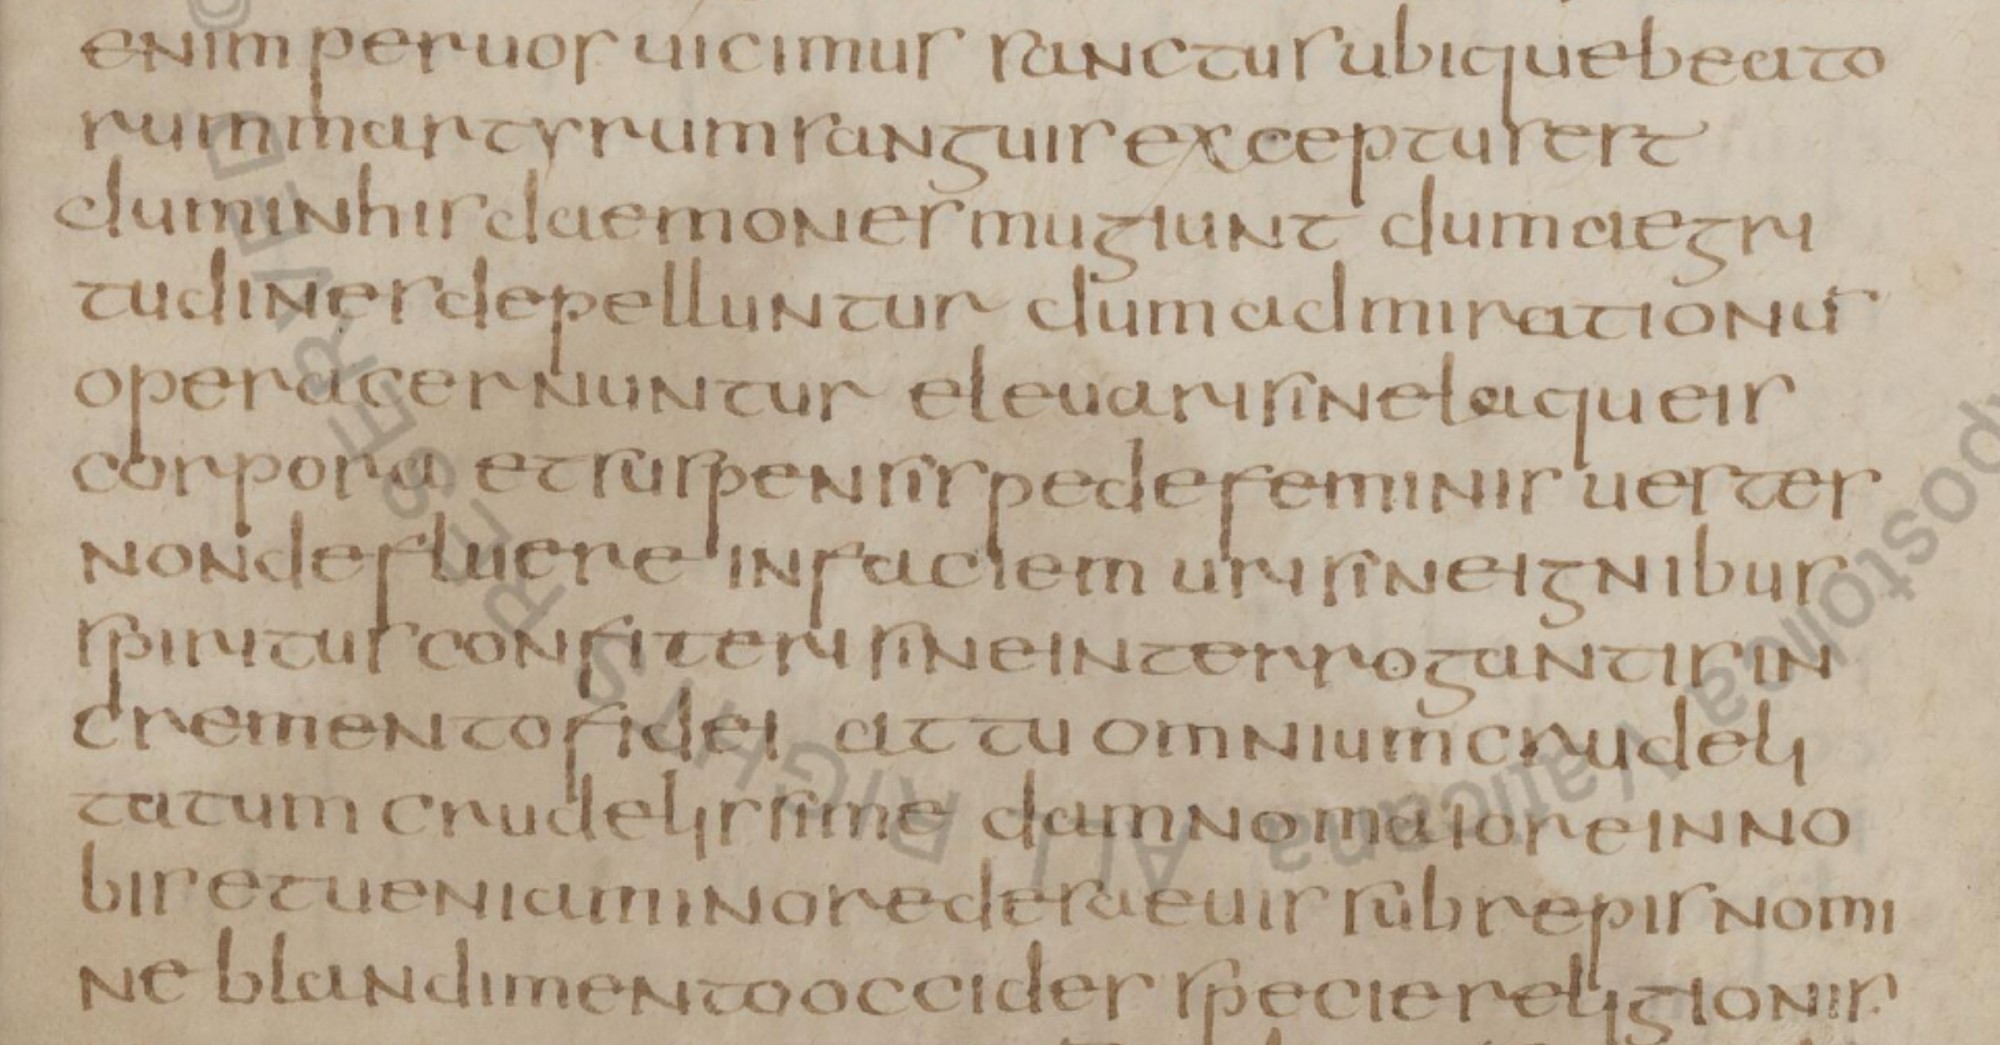 enim per uos uicimus sanctus ubique beato
rum martyrum sanguis exceptus est
dum in his daemones mugiunt dum aegri
tudines depelluntur dum admirationū
opera cernuntur eleuari sine laqueis
corpora et suspensis pede feminis uestes
non defluere in faciem uri sine ignibus
spiritus confiteri sine interrogantis in
cremento fidei at tu omnium crudeli
tatum crudelissime damno maiore in no
bis et uenia minore desaeuis subrepis nomi
ne blandimento occides specie religionis
ALL RIGHTS RESERVED ©
postolica Vaticana